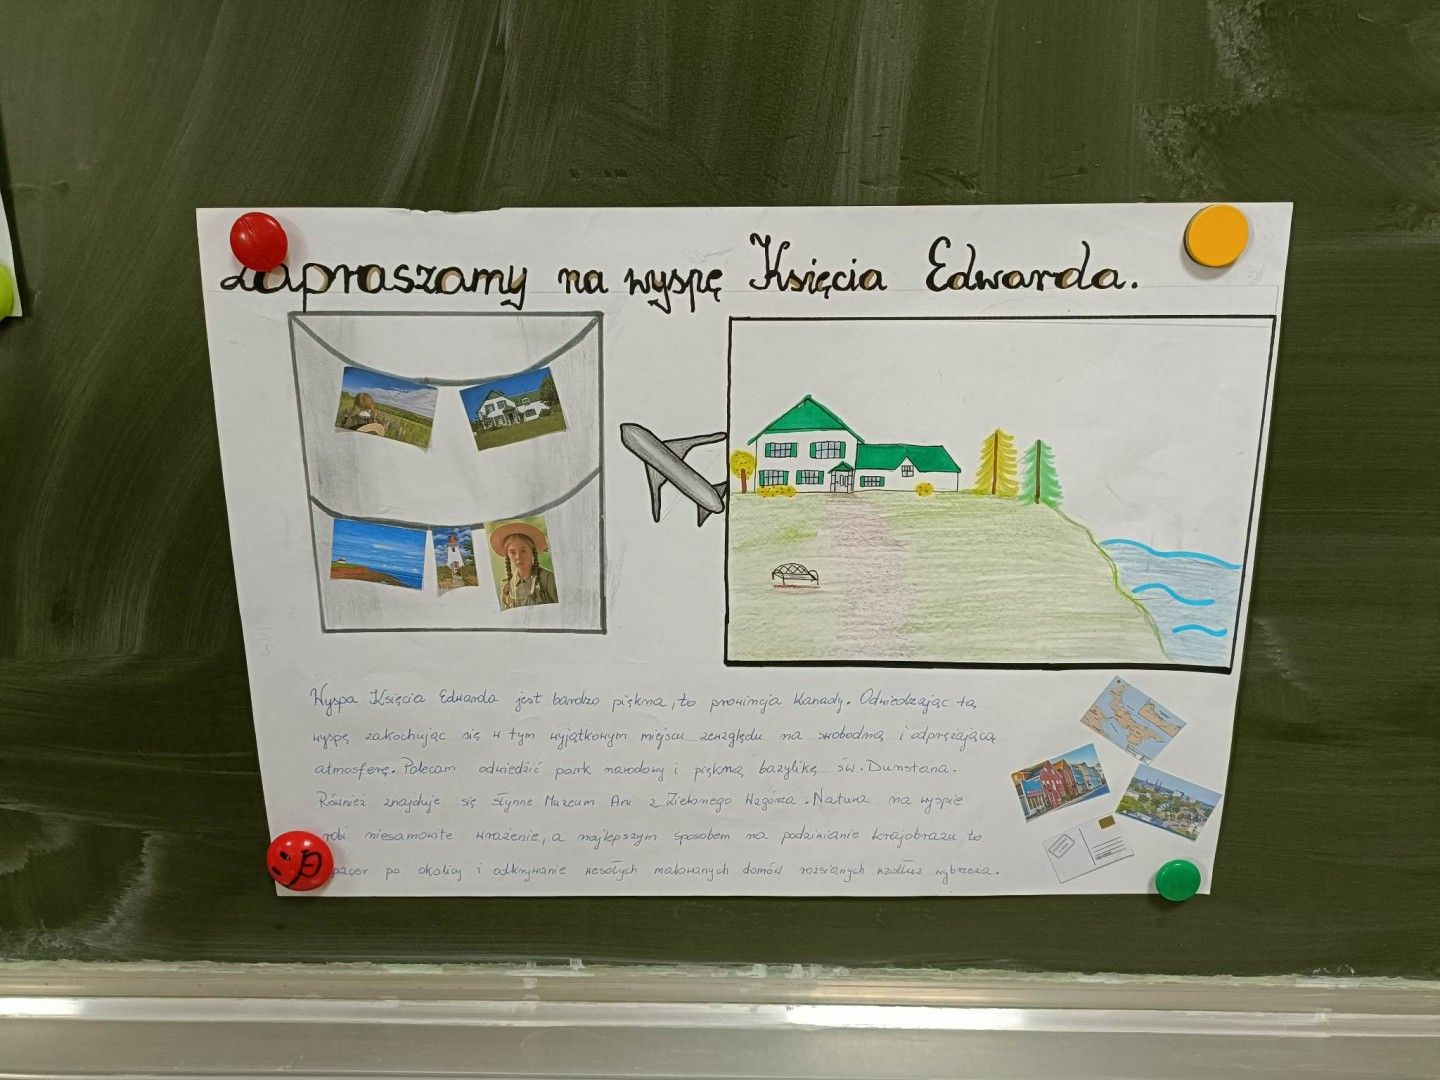 Zapraszamy na wyspę Księcia Edwarda.
Wyspa Księcia Edwarda jest bardzo piękna, to prowincja Kanady. Odwiedzając tą
wyspę zakochując się w tym wyjątkowym miejscu zewzględu na swobodną i odprężającą
atmosferę. Polecam odwiedzić park narodowy i piękną bazylikę św. Dunstana.
Również znajduje się słynne Muzeum Ani z Zielonego Wzgórza. Natura na wyspie
robi niesamowite wrażenie, a najlepszym sposobem na podziwianie krajobrazu to
spacer po okolicy i odkrywanie wesołych malowanych domów rozsianych wzdłuż wybrzeża.